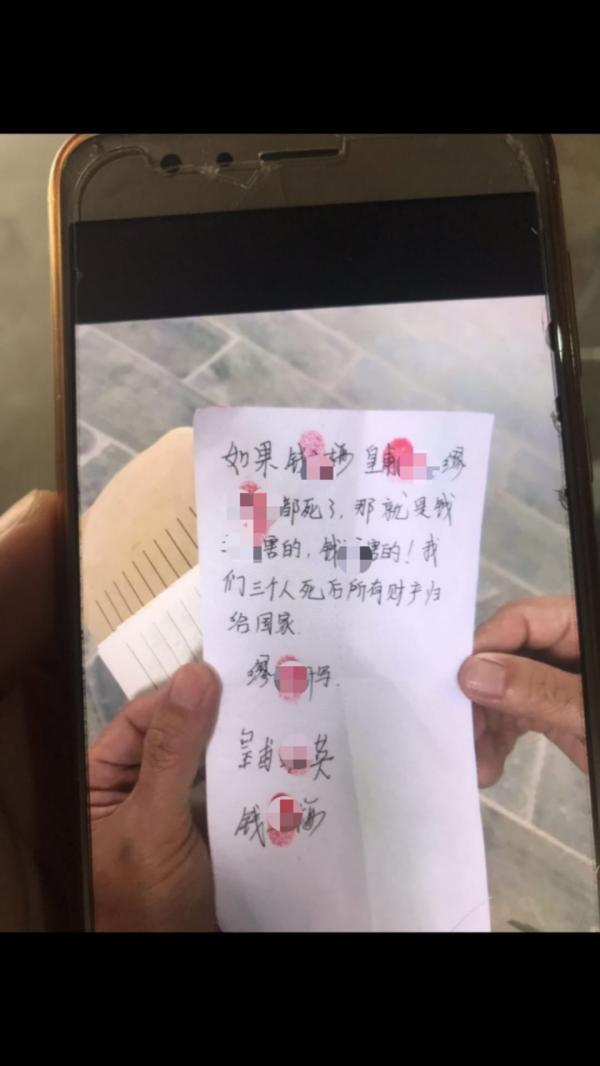 如果钱 梅 皇甫 缪
都死了,那就是钱
害的,钱 害的!我
们三个人死后所有财产归
给国家.
缪 写.
皇甫 英
钱 梅